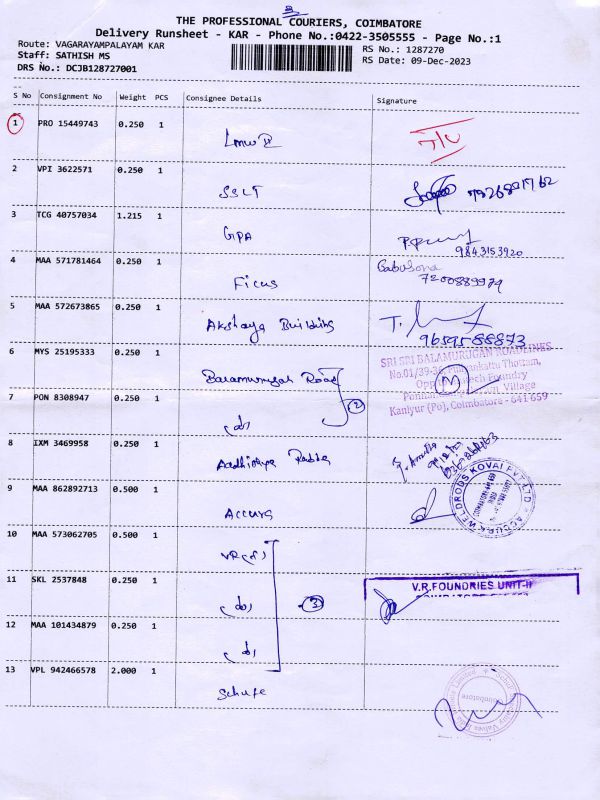 3
THE PROFESSIONAL COURIERS, COIMBATORE
Delivery Runsheet - KAR - Phone No.:0422-3505555 - Page No.:1
Route: VAGARAYAMPALAYAM KAR
RS No.: 1287270
Staff: SATHISH MS
RS Date: 09-Dec-2023
DRS No.: DCJB128727001
S No Consignment No Weight PCS Consignee Details Signature
1 PRO 15449743 0.250 1
2 VPI 3622571 0.250 1
SSLT
3 TCG 40757034 1.215 1
GPA
9843153920
4 MAA 571781464 0.250 1
Ficus
7200889979
5 MAA 572673865 0.250 1
Akshaya Building
T.
9659588873
6 MYS 25195333 0.250 1
Balamurugan Road
SRI SRI BALAMURUGAN ROADLINES
No.01/39-3 Thottam,
Foundry
Village
Kaniyur (Po), Coimbatore - 641 659
7 PON 8308947 0.250 1
2
8 IXM 3469958 0.250 1
9 MAA 862892713 0.500 1
Accura
ACCURA WELDRODS KOVAI PVT LTD
10 MAA 573062705 0.500 1
VR
11 SKL 2537848 0.250 1
3
V.R.FOUNDRIES UNIT-II
12 MAA 101434879 0.250 1
13 VPL 942466578 2.000 1
Coimbatore